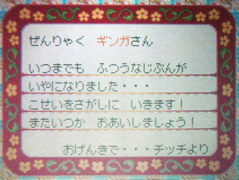 ぜんりゃく ギンガさん
いつまでも ふつうなじぶんが
いやになりました・・・
こせいをさがしに いきます！
またいつか おあいしましょう！
おげんきで・・・チッチより